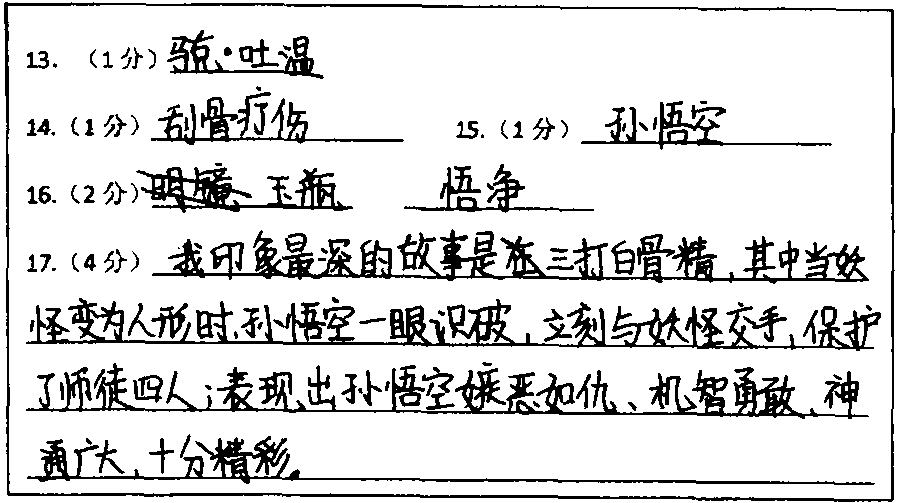 13. （1分）骉·吐温
14.（1分）刮骨疗伤 15.（1分）孙悟空
16.（2分）玉瓶 悟净
17.（4分）我印象最深的故事是三打白骨精，其中当妖
怪变为人形时，孙悟空一眼识破，立刻与妖怪交手，保护
了师徒四人；表现出孙悟空嫉恶如仇、机智勇敢、神
通广大，十分精彩。